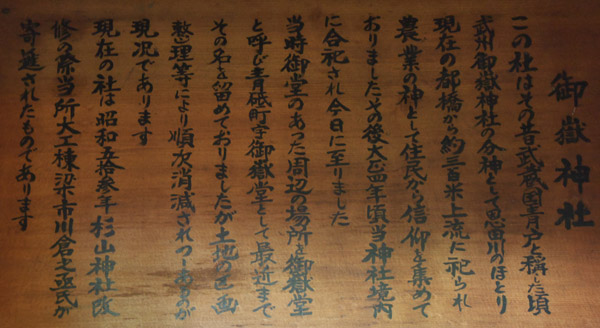 御嶽神社
この社はその昔武蔵国青戸と稱した頃
武州御嶽神社の分神として恩田川のほとり
現在の都橋から約三百米上流に祀られ
農業の神として住民から信仰を集めて
おりましたその後大正四年頃当神社境内
に合祀され今日に至りました
当時御堂のあった周辺の場所を御嶽堂
と呼び青砥町字御嶽堂として最近まで
その名を留めておりましたが土地の区画
整理等により順次消滅されつゝあるのが
現況であります
現在の社は昭和五拾参年杉山神社改
修の際当所大工棟梁市川倉之丞氏が
寄進されたものであります